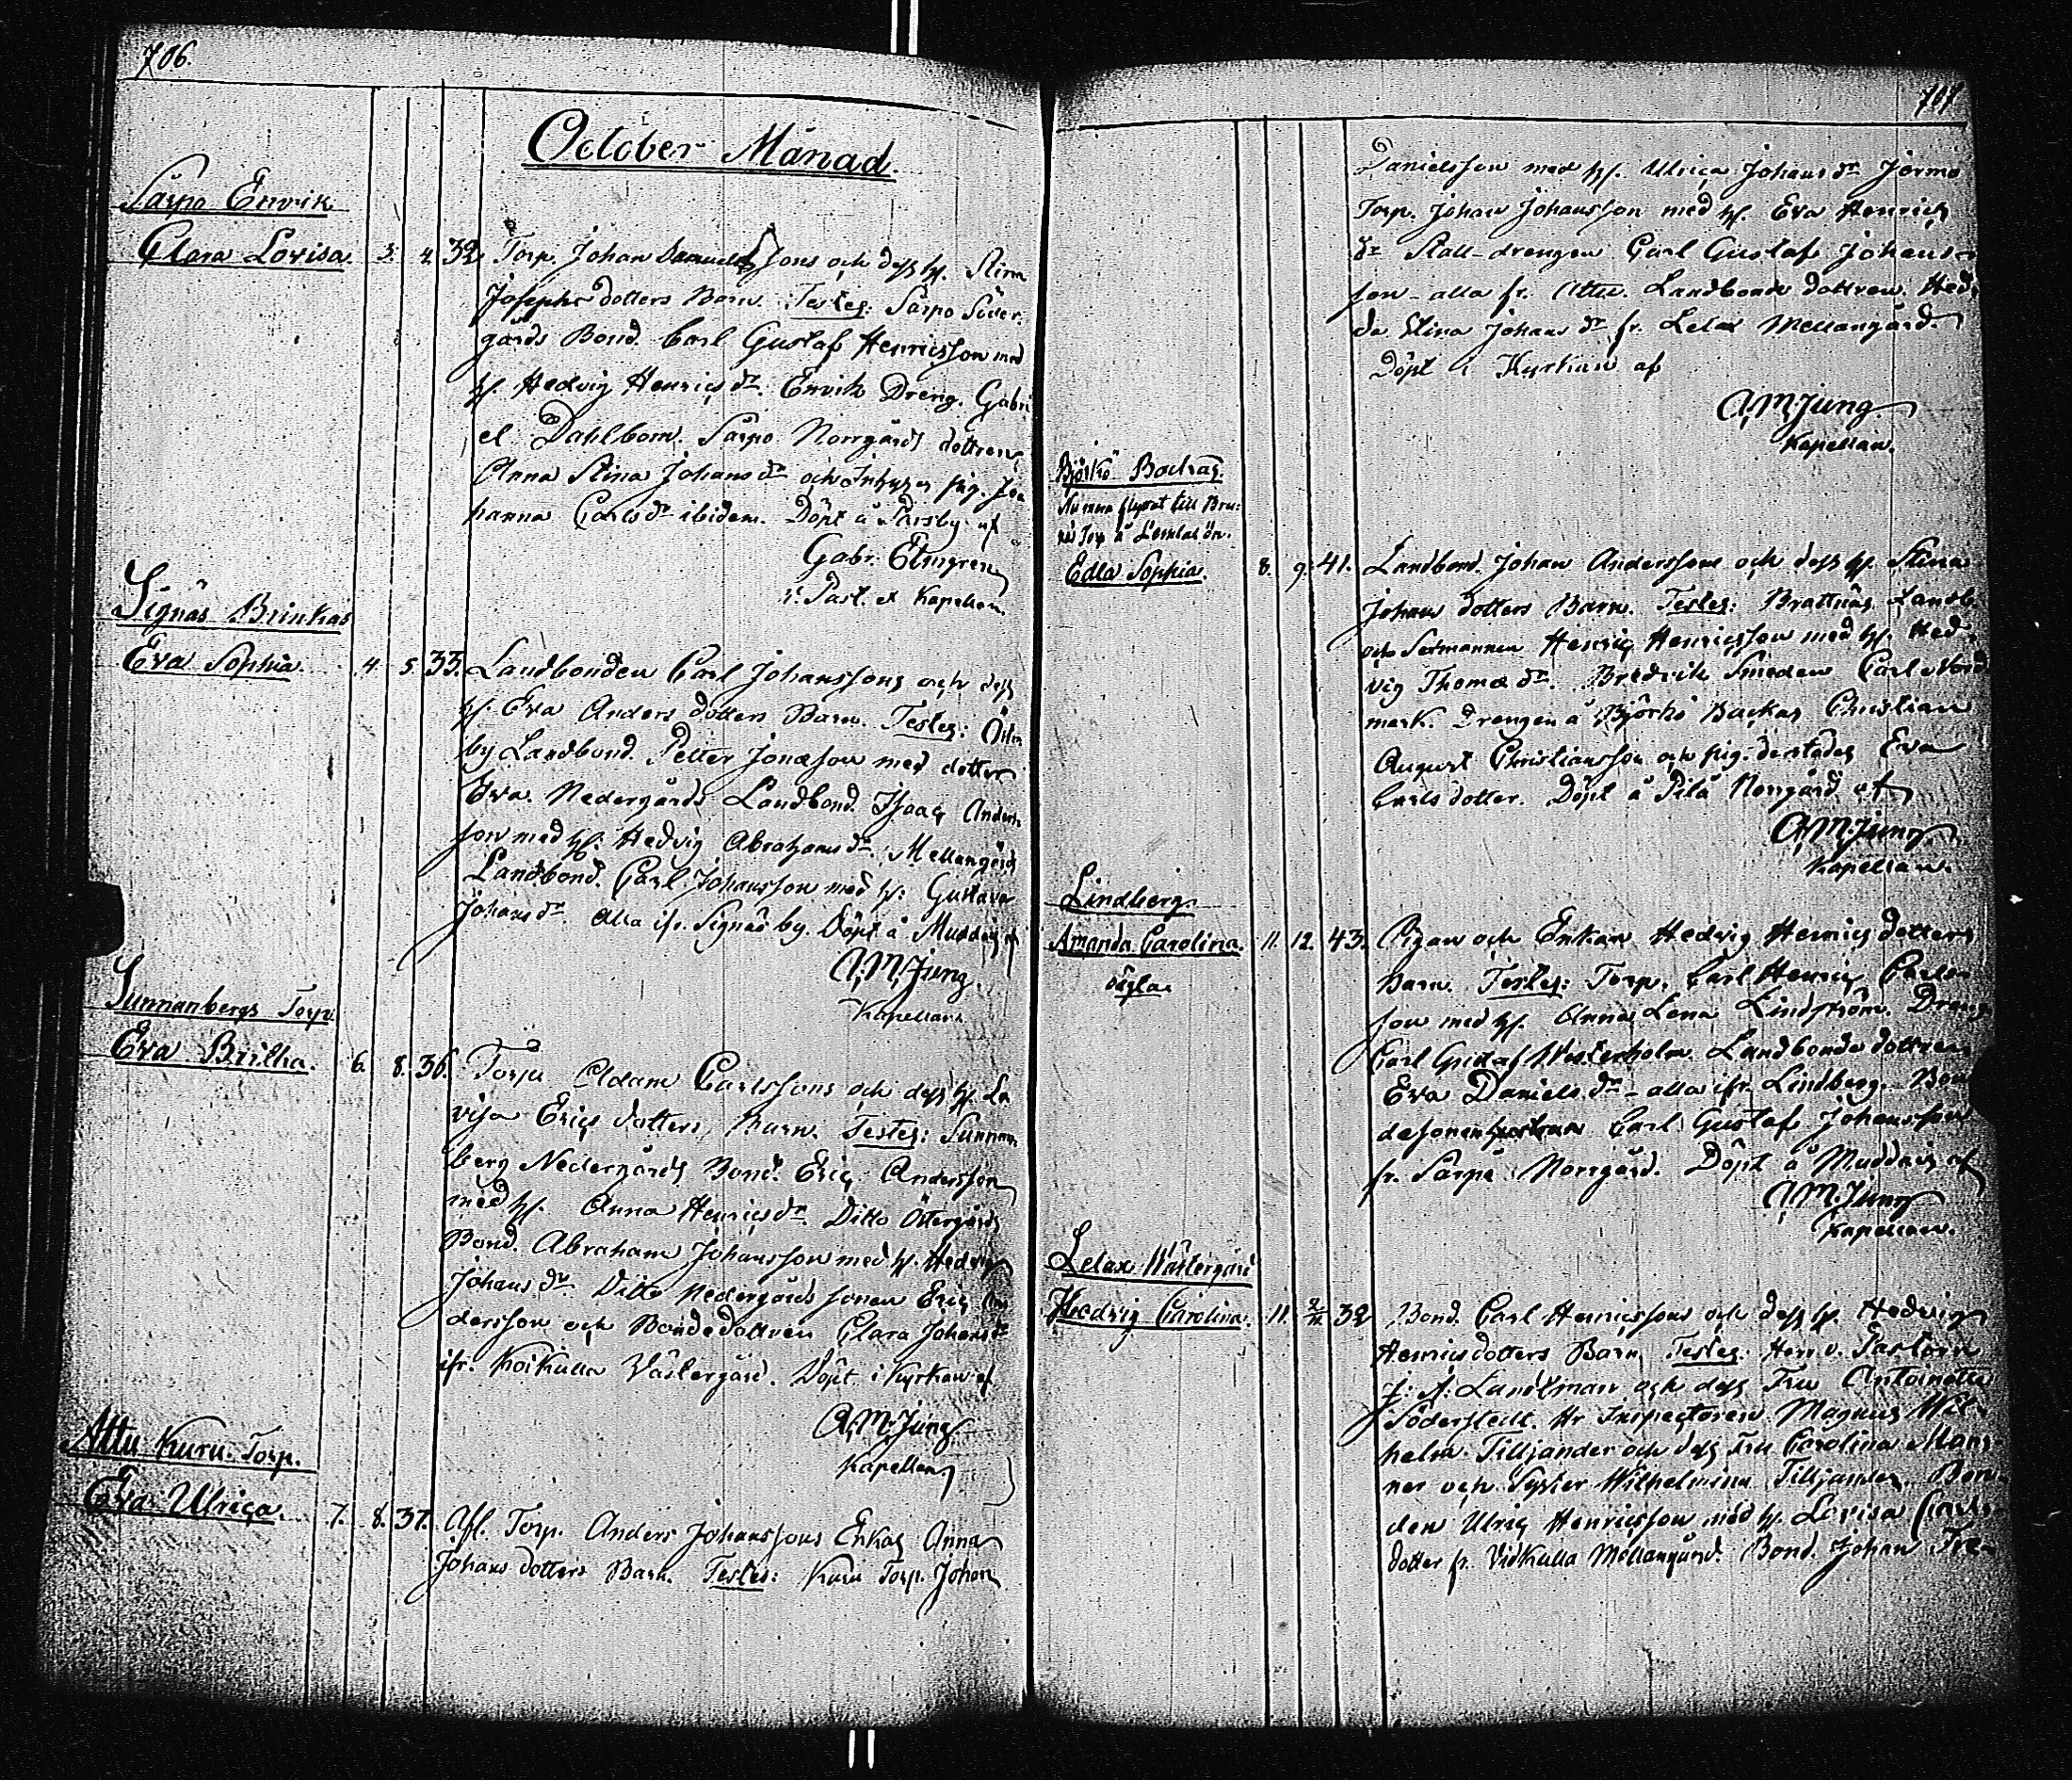 706.
October Månad.
Sarpo Enrvik
Clara Lovisa. 3. 4. 32. Torp. Johan Samuelssons och dess h. Stina
Josephs dotters Barn. Testes: Sarpo Söder-
gårds Bond. Carl Gustaf Henricsson med
h. Hedvig Henrics dr. Enrvik Dreng. Gabri
el Dahlbom. Sarpo Norrgårds dottren
Anna Stina Johans dr och Inhyses pig. Jo
hanna Carls dr ibidem. Döpt å Parsby af
Gabr. Elmgren
v. Past. et Kapellan.
Signäs Brinkas
Eva Sophia. 4. 5. 33. Landbonden Carl Johanssons och dess
h. Eva Anders dotters Barn. Testes: Öster
by Landbond. Petter Jonasson med dotter
Eva. Nedergårds Landbond. Isaac Anders
son med h. Hedvig Abrahams dr. Mellangårds
Landbond. Carl Johansson med h. Gustava
Johans dr alla ifr. Signäs by. Döpt å Muddais af
A. M. Jung.
Kapellan.
Sunnanbergs Torp.
Eva Britha. 6. 8. 36. Torp. Adam Carlssons och dess h. Lo
visa Erics dotters Barn. Testes: Sunnan
berg Nedergårds Bond. Eric Andersson
med h. Anna Henrics dr. Ditto Östergårds
Bond. Abraham Johansson med h. Hedvig
Johans dr. Ditto Nedergårds sonen Eric An
dersson och Bondedottren Clara Johans dr
ifr. Koikulla Västergård. Döpt i Kyrkan af
A. M. Jung.
Kapellan
Attu Kuru. Torp.
Eva Ulrica. 7. 8. 37. Afl. Torp. Anders Johanssons Enkas Anna
Johans dotters Barn. Testes: Kuru Torp. Johan
707
Danielsson med h. Ulrica Johans dr Jermo
Torp. Johan Johansson med h. Eva Henrics
dr Stall-drengen Carl Gustaf Johans-
son - alla fr. Attu. Landbonde dottren Hed-
da Stina Johans dr fr. Lelax Mellangård.
Döpt i Kyrkan af
A. M. Jung.
Kapellan.
Björkö Backas.
Numera flyttat till
Torp å
Edla Sophia. 8. 9. 41. Landbond. Johan Anderssons och dess h. Stina
Johans dotters Barn. Testes: Brattnäs Landb.
och Sexmannen Henric Henricsson med h. Hed-
vig Thomæ dr. Bredvik Smeden Carl
mark. Drengen å Björkö Backas Christian
August Christiansson och pig. derstädes Eva
Carls dotter. Döpt å Pila Norrgård af
A. M. Jung.
Kapellan.
Lindberg.
Amanda Carolina. 11. 12. 43. Pigan och Enkan Hedvig Henrics dotters
oägta. Barn. Testes: Torp. Carl Henric Carls-
son med h. Anna Lena Lindström. Dreng.
Carl Gustaf Westerholm. Landbonde dottren
Eva Daniels dr - alla ifr. Lindberg. Bon
desonen Carl Gustaf Johansson
fr. Sarpo Norrgård. Döpt å Muddais af
A. M. Jung
Kapellan.
Lelax Wästergård
Hedvig Carolina. 11. 32 Bond. Carl Henricssons och dess h. Hedvig
Henricsdotters Barn. Testes: Herr v. Pastorn
J. A. Landtman och dess Fru Antoinette
Söderstedt. Hr Inspectoren Magnus Wil-
helm Tilljander och dess Fru Carolina Man
ner och Syster Wilhelmina Tilljander. Bon-
den Ulric Henricsson med h. Lovisa Carls
dotter fr. Vidkulla Mellangård. Bond. Johan Fre-